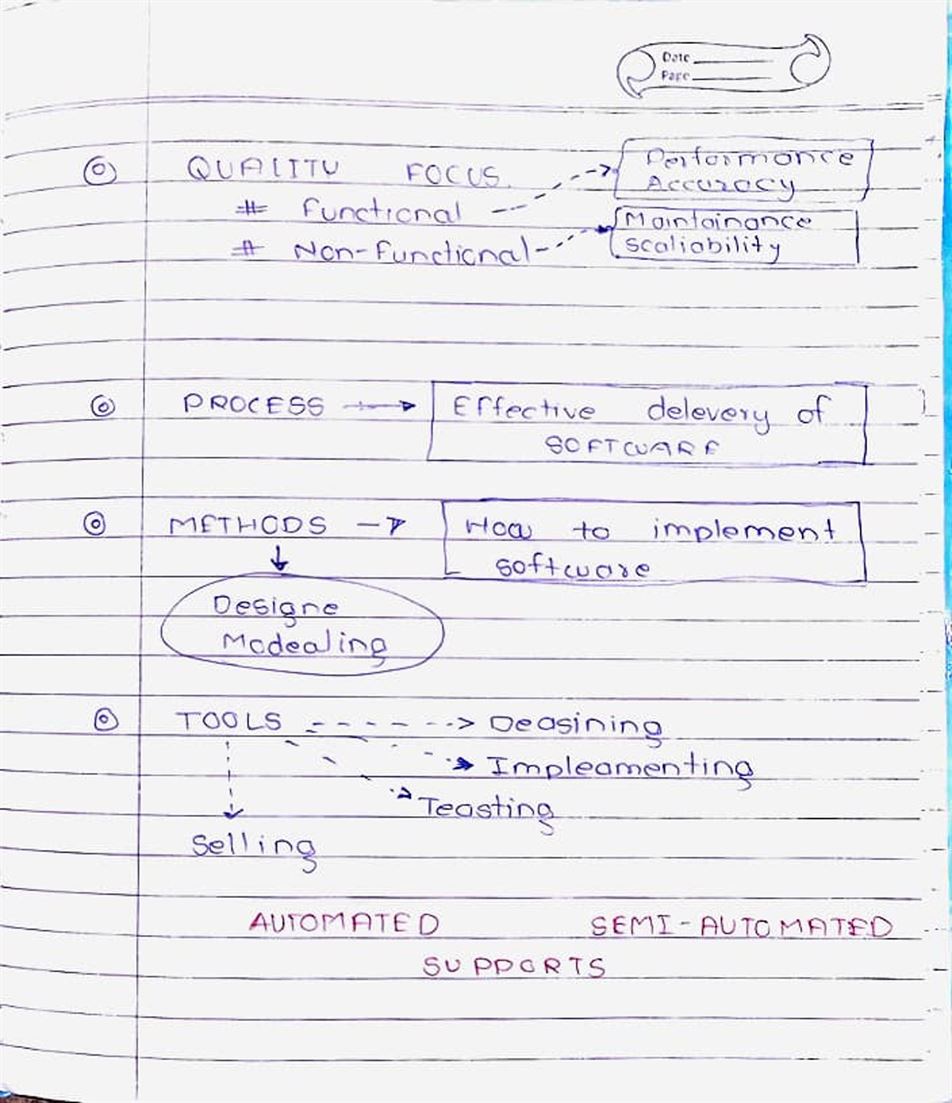 Date
Page
QUALITY FOCUS.
Performance
Accuracy
# Functional
Maintainance
scaliability
# Non-Functional
PROCESS → Effective delevery of
SOFTWARE
METHODS → How to implement
software
Designe
Modealing
TOOLS → Deasining
Impleamenting
Teasting
Selling
AUTOMATED SEMI-AUTOMATED
SUPPORTS